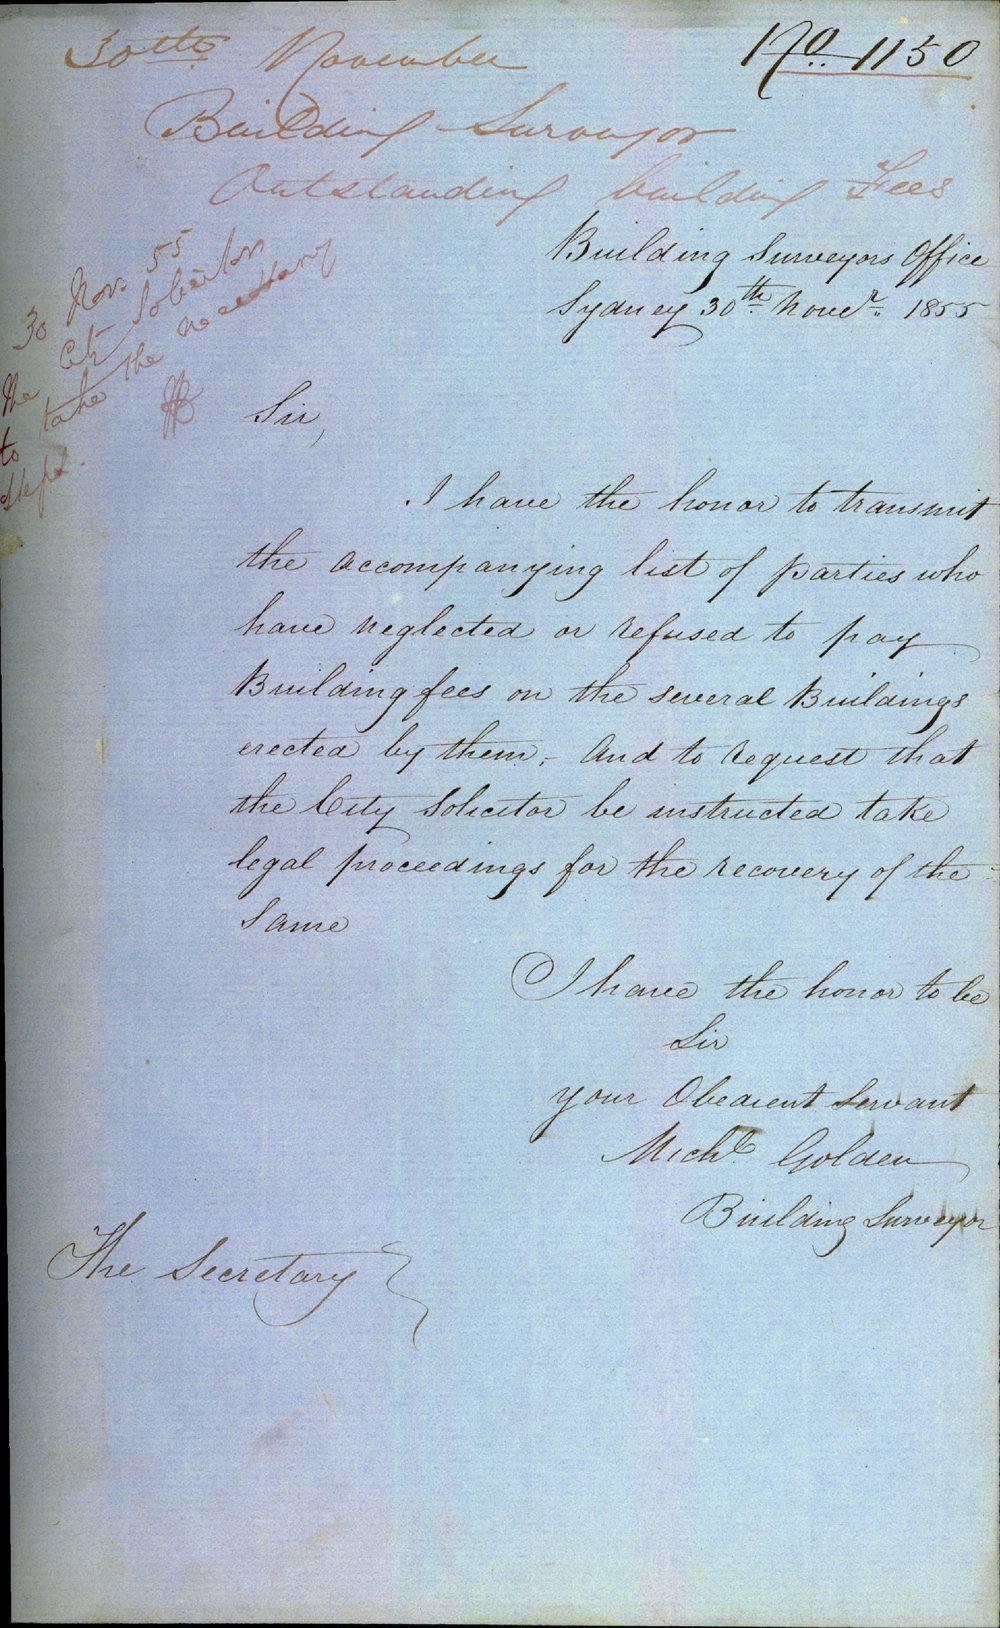 30th November
No. 1150
Building Surveyor
Outstanding building Fees
Building Surveyors Office
Sydney 30th Novr. 1855
30 Nov 55
The City Solicitor
to take the necessary
steps.
Sir,
I have the honor to transmit
the accompanying list of parties who
have neglected or refused to pay
Building fees on the several Buildings
erected by them, - And to request that
the City Solicitor be instructed take
legal proceedings for the recovery of the
Same
I have the honor to be
Sir
your Obedient Servant
Michl. Golden
Building Surveyor
The Secretary